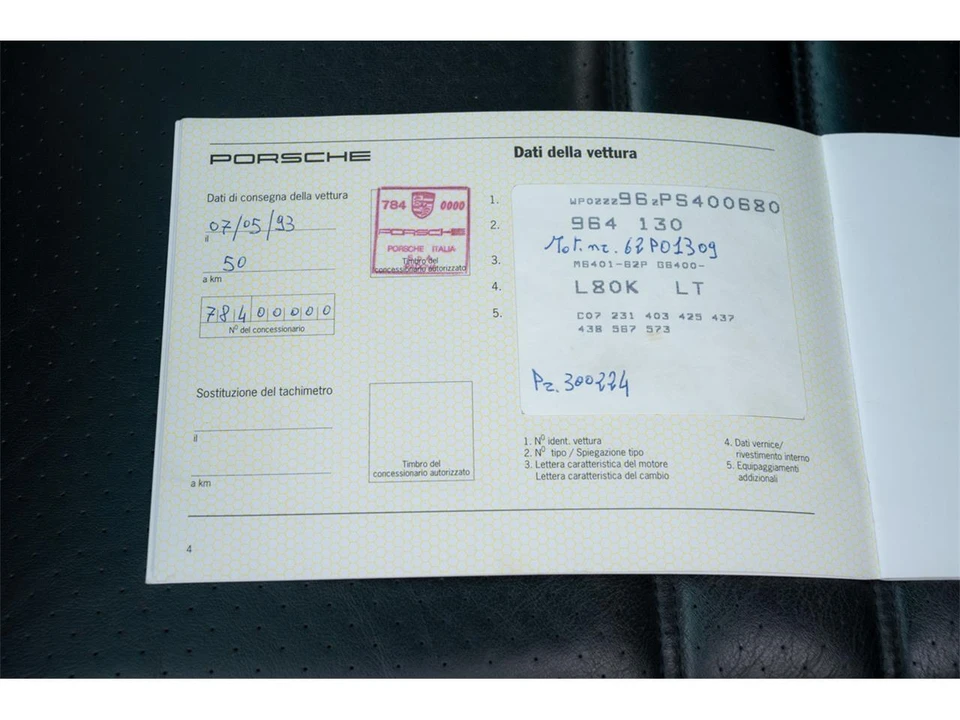 PORSCHE
Dati di consegna della vettura
07/05/93
il
50
a km
784 00000
Nº del concessionario
784 0000
PORSCHE
PORSCHE ITALIA
Timbro del
concessionario autorizzato
Sostituzione del tachimetro
il
a km
Timbro del
concessionario autorizzato
4
Dati della vettura
1. WP0ZZZ96ZPS400680
2. 964 130
Mot. nr. 62P01309
3. M6401-62P G6400-
4. L80K LT
5. C07 231 403 425 437
438 567 573
Pz. 300224
1. Nº ident. vettura
2. Nº tipo / Spiegazione tipo
3. Lettera caratteristica del motore
Lettera caratteristica del cambio
4. Dati vernice/
rivestimento interno
5. Equipaggiamenti
addizionali